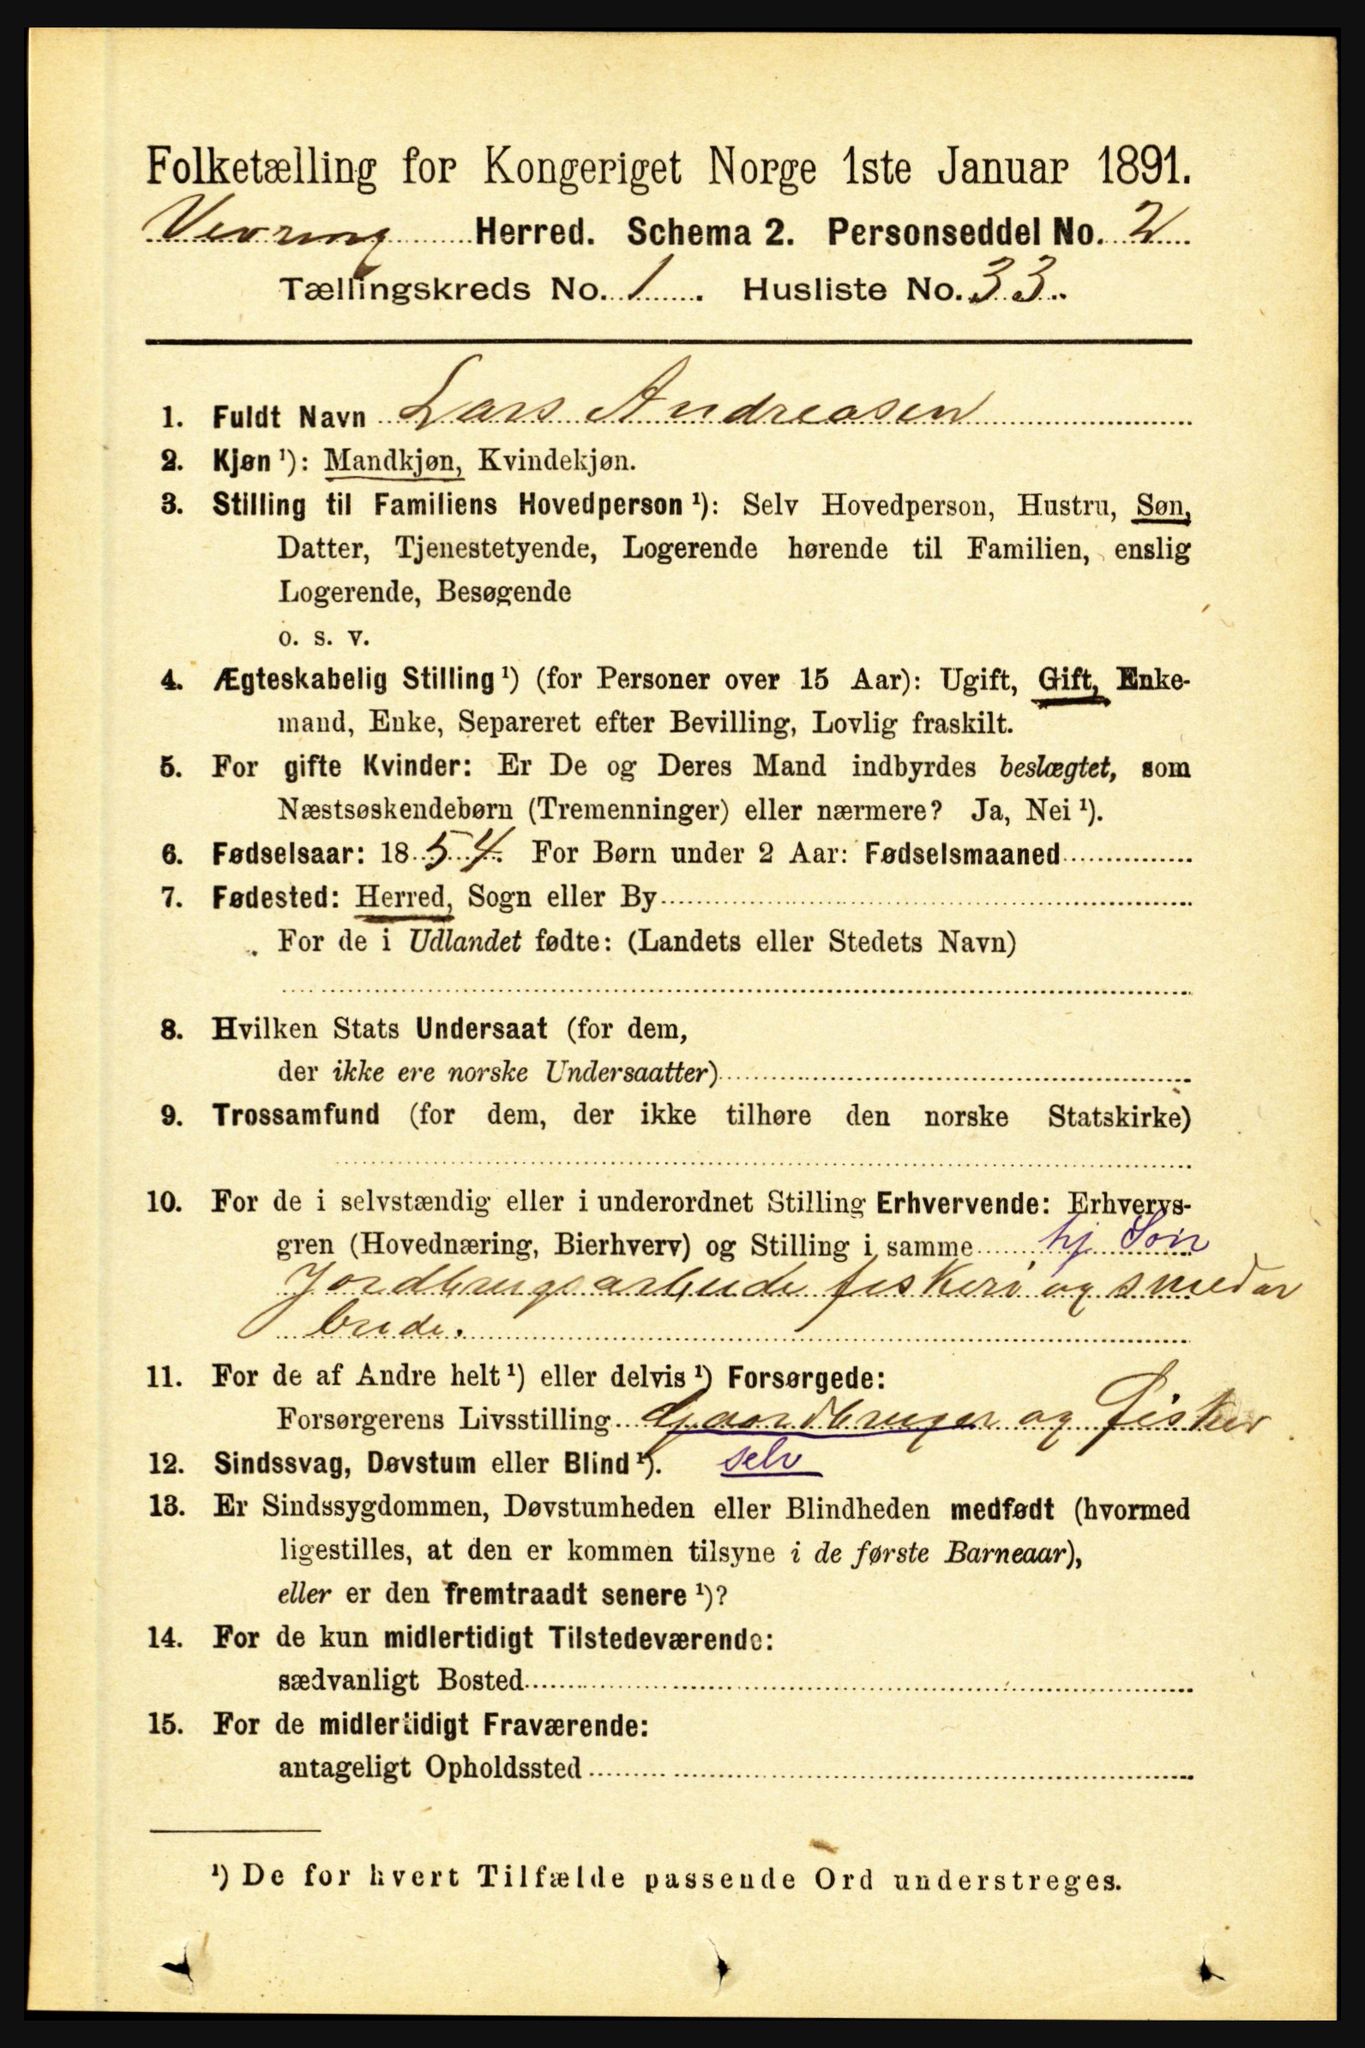 Folketælling for Kongeriget Norge 1ste Januar 1891.
Vevring Herred. Schema 2. Personseddel No. 2
Tællingskreds No. 1 . Husliste No. 33.
1. Fuldt Navn Lars Andreasen
2. Kjøn ¹): Mandkjøn, Kvindekjøn.
3. Stilling til Familiens Hovedperson ¹): Selv Hovedperson, Hustru, Søn,
Datter, Tjenestetyende, Logerende hørende til Familien, enslig
Logerende, Besøgende
o. s. v.
4. Ægteskabelig Stilling ¹) (for Personer over 15 Aar): Ugift, Gift, Enke-
mand, Enke, Separeret efter Bevilling, Lovlig fraskilt.
5. For gifte Kvinder: Er De og Deres Mand indbyrdes beslægtet, som
Næstsøskendebørn (Tremenninger) eller nærmere? Ja, Nei ¹).
6. Fødselsaar: 1854. For Børn under 2 Aar: Fødselsmaaned
7. Fødested: Herred, Sogn eller By
For de i Udlandet fødte: (Landets eller Stedets Navn)
8. Hvilken Stats Undersaat (for dem,
der ikke ere norske Undersaatter)
9. Trossamfund (for dem, der ikke tilhøre den norske Statskirke)
10. For de i selvstændig eller i underordnet Stilling Erhvervende: Erhvervs-
gren (Hovednæring, Bierhverv) og Stilling i samme hj Søn
Jordbrugsarbeide fiskeri og smedar
beide.
11. For de af Andre helt ¹) eller delvis ¹) Forsørgede:
Forsørgerens Livsstilling Gaardbruger og Fisker
12. Sindssvag, Døvstum eller Blind ¹). selv
13. Er Sindssygdommen, Døvstumheden eller Blindheden medfødt (hvormed
ligestilles, at den er kommen tilsyne i de første Barneaar),
eller er den fremtraadt senere ¹)?
14. For de kun midlertidigt Tilstedeværende:
sædvanligt Bosted
15. For de midlertidigt Fraværende:
antageligt Opholdssted
¹) De for hvert Tilfælde passende Ord understreges.